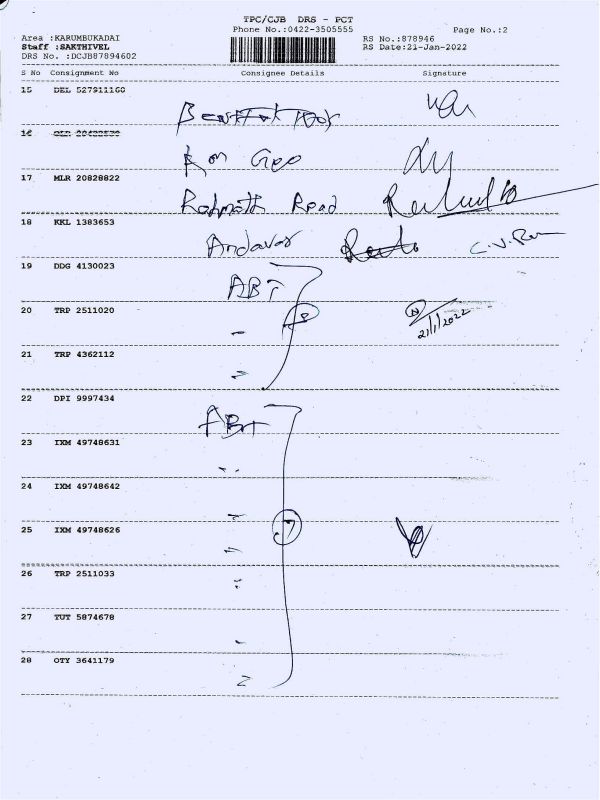 TPC/CJB DRS - PCT
Phone No.:0422-3505555 Page No.:2
Area :KARUMBUKADAI RS No.:878946
Staff :SAKTHIVEL RS Date:21-Jan-2022
DRS No. :DCJB87894602
S No Consignment No Consignee Details Signature
15 DEL 527911160
16
17 MLR 20828822 Rahmath Road
18 KKL 1383653 Andavar
19 DDG 4130023 ABT
20 TRP 2511020 21/1/2022
21 TRP 4362112
22 DPI 9997434 ABT
23 IXM 49748631
24 IXM 49748642
25 IXM 49748626 7
26 TRP 2511033
27 TUT 5874678
28 OTY 3641179